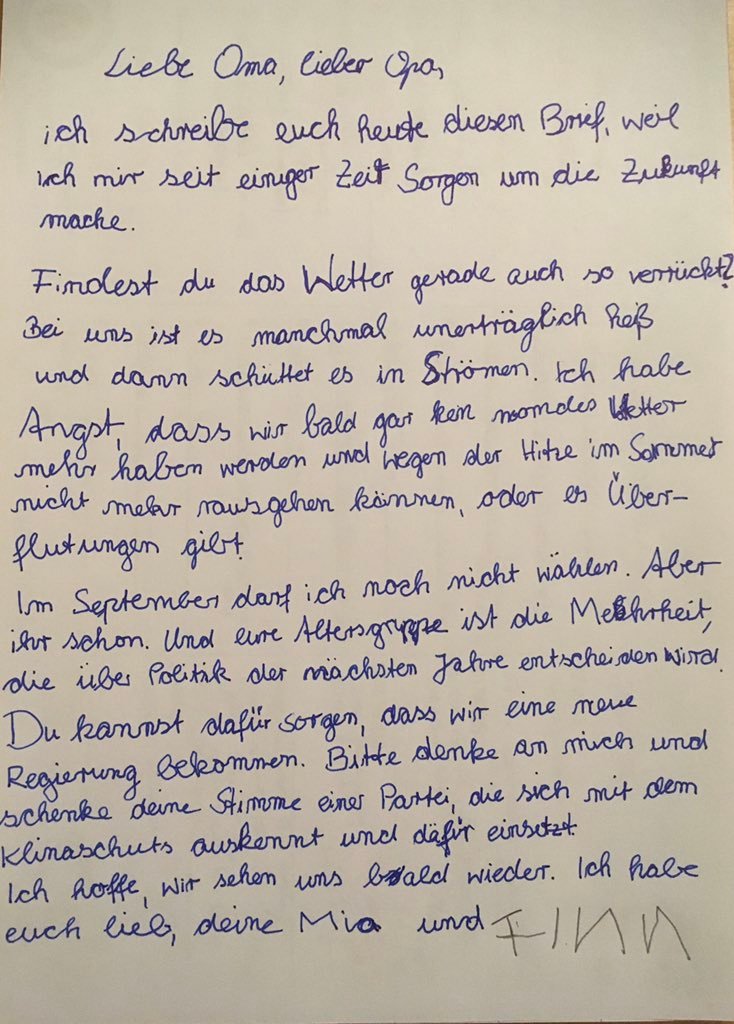 Liebe Oma, lieber Opa,
ich schreibe euch heute diesen Brief, weil
ich mir seit einiger Zeit Sorgen um die Zukunft
mache.
Findest du das Wetter gerade auch so verrückt?
Bei uns ist es manchmal unerträglich heiß
und dann schüttet es in Strömen. Ich habe
Angst, dass wir bald gar kein normales Wetter
mehr haben werden und wegen der Hitze im Sommer
nicht mehr rausgehen können, oder es Über-
flutungen gibt.
Im September darf ich noch nicht wählen. Aber
ihr schon. Und eure Altersgruppe ist die Mehrheit,
die über Politik der nächsten Jahre entscheiden wird.
Du kannst dafür sorgen, dass wir eine neue
Regierung bekommen. Bitte denke an mich und
schenke deine Stimme einer Partei, die sich mit dem
Klimaschuts auskennt und dafür einsetzt.
Ich hoffe, wir sehen uns bald wieder. Ich habe
euch lieb, deine Mia und FINN